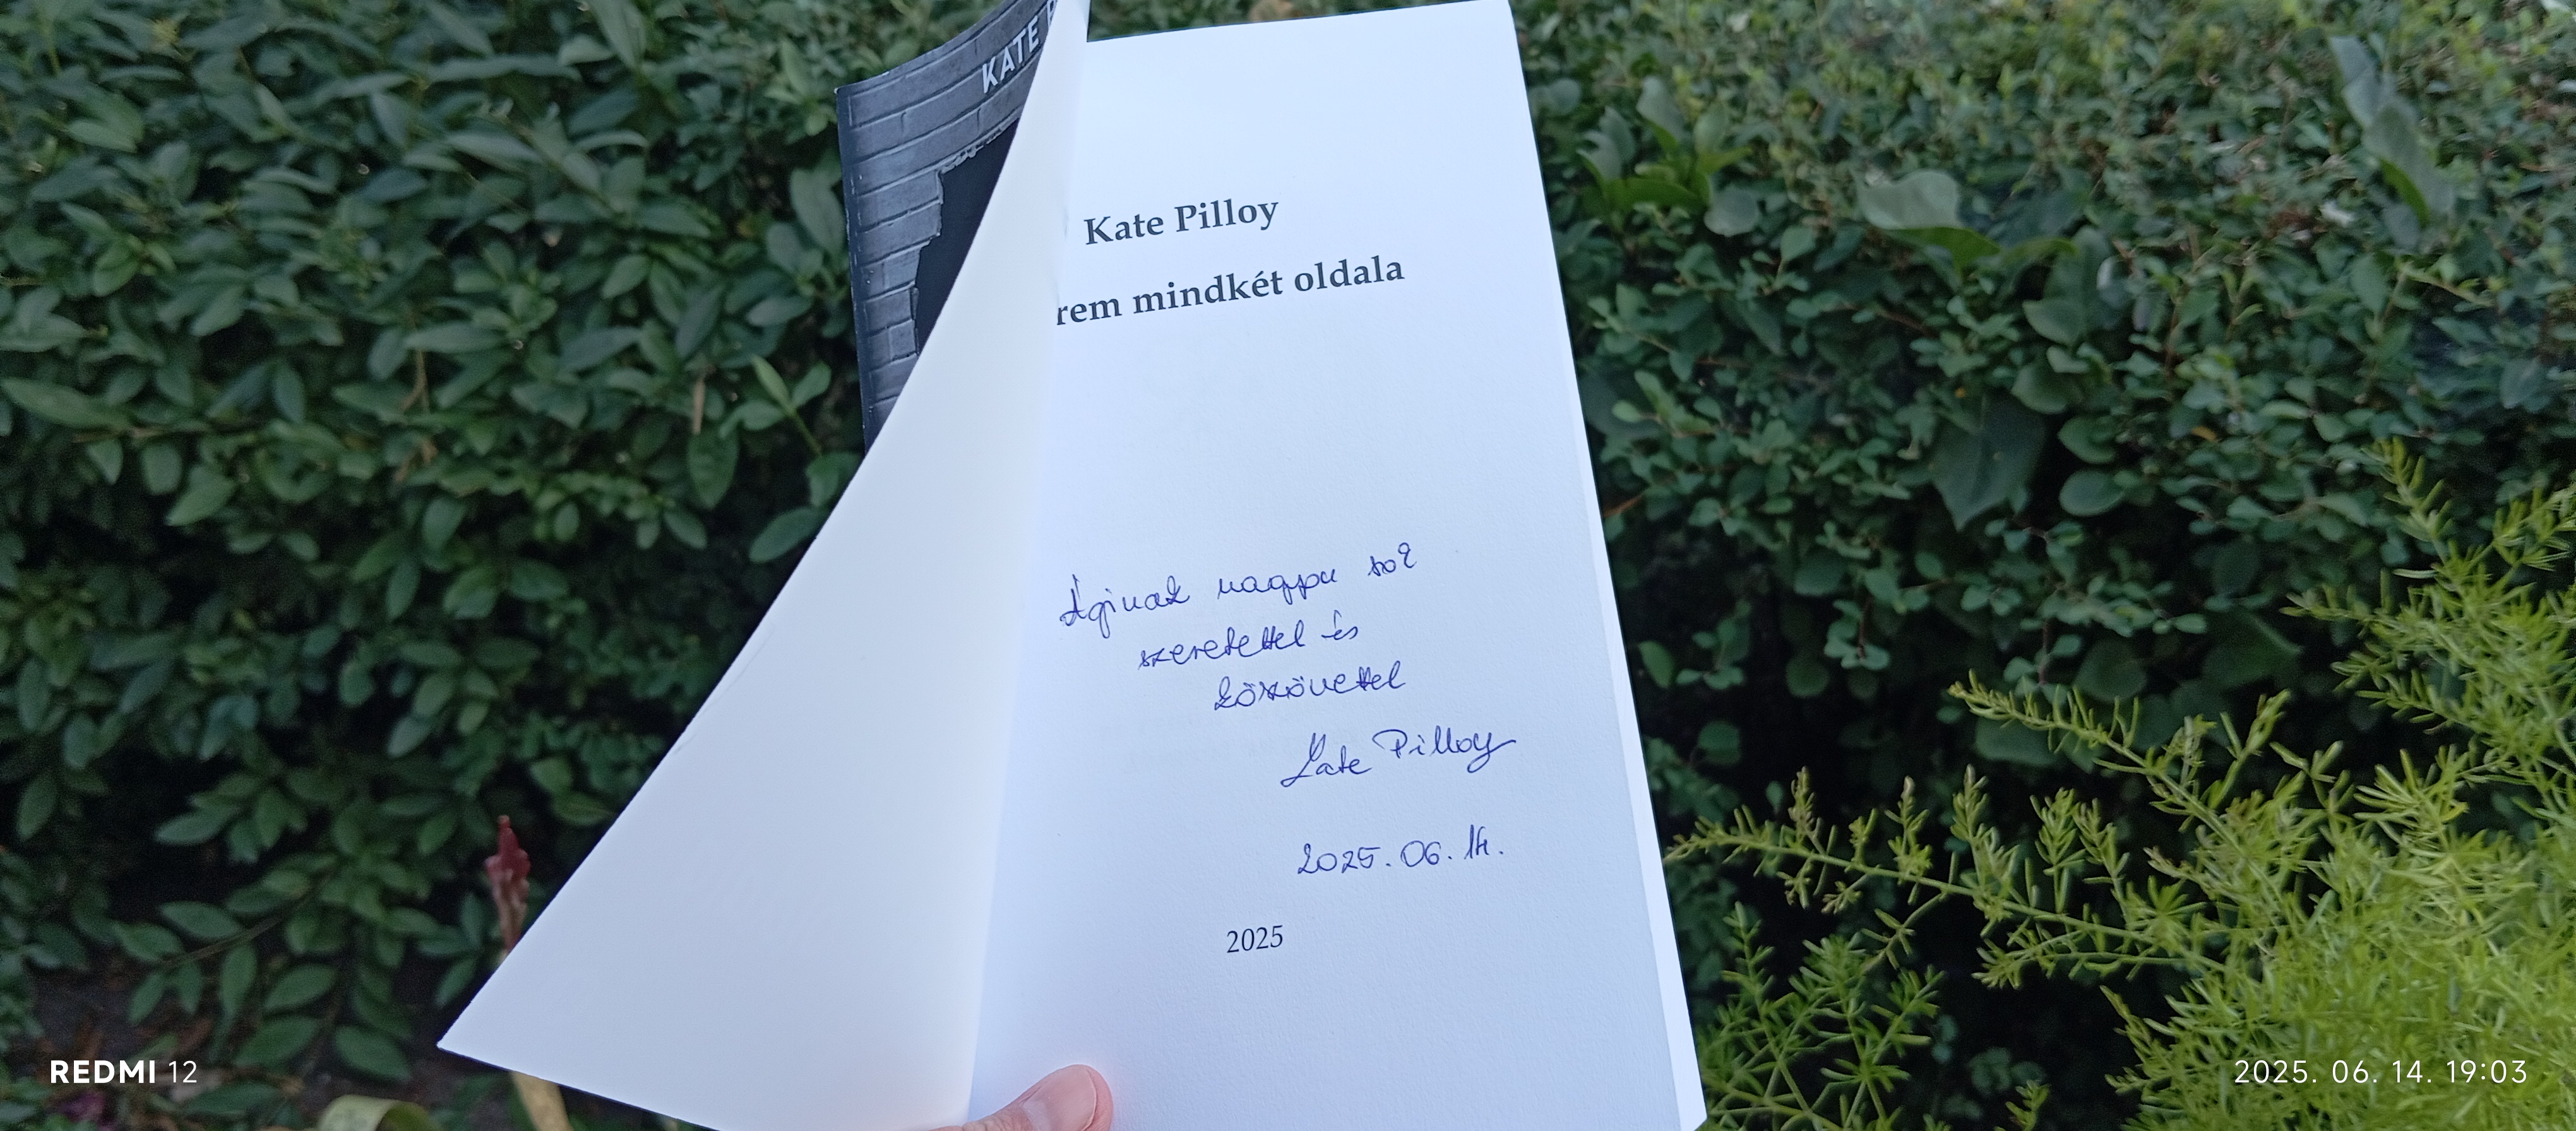 KATE
Kate Pilloy
rem mindkét oldala
Áginak nagyon sok
szeretettel és
köszönettel
Kate Pilloy
2025. 06. 14.
2025
REDMI 12
2025. 06. 14. 19:03